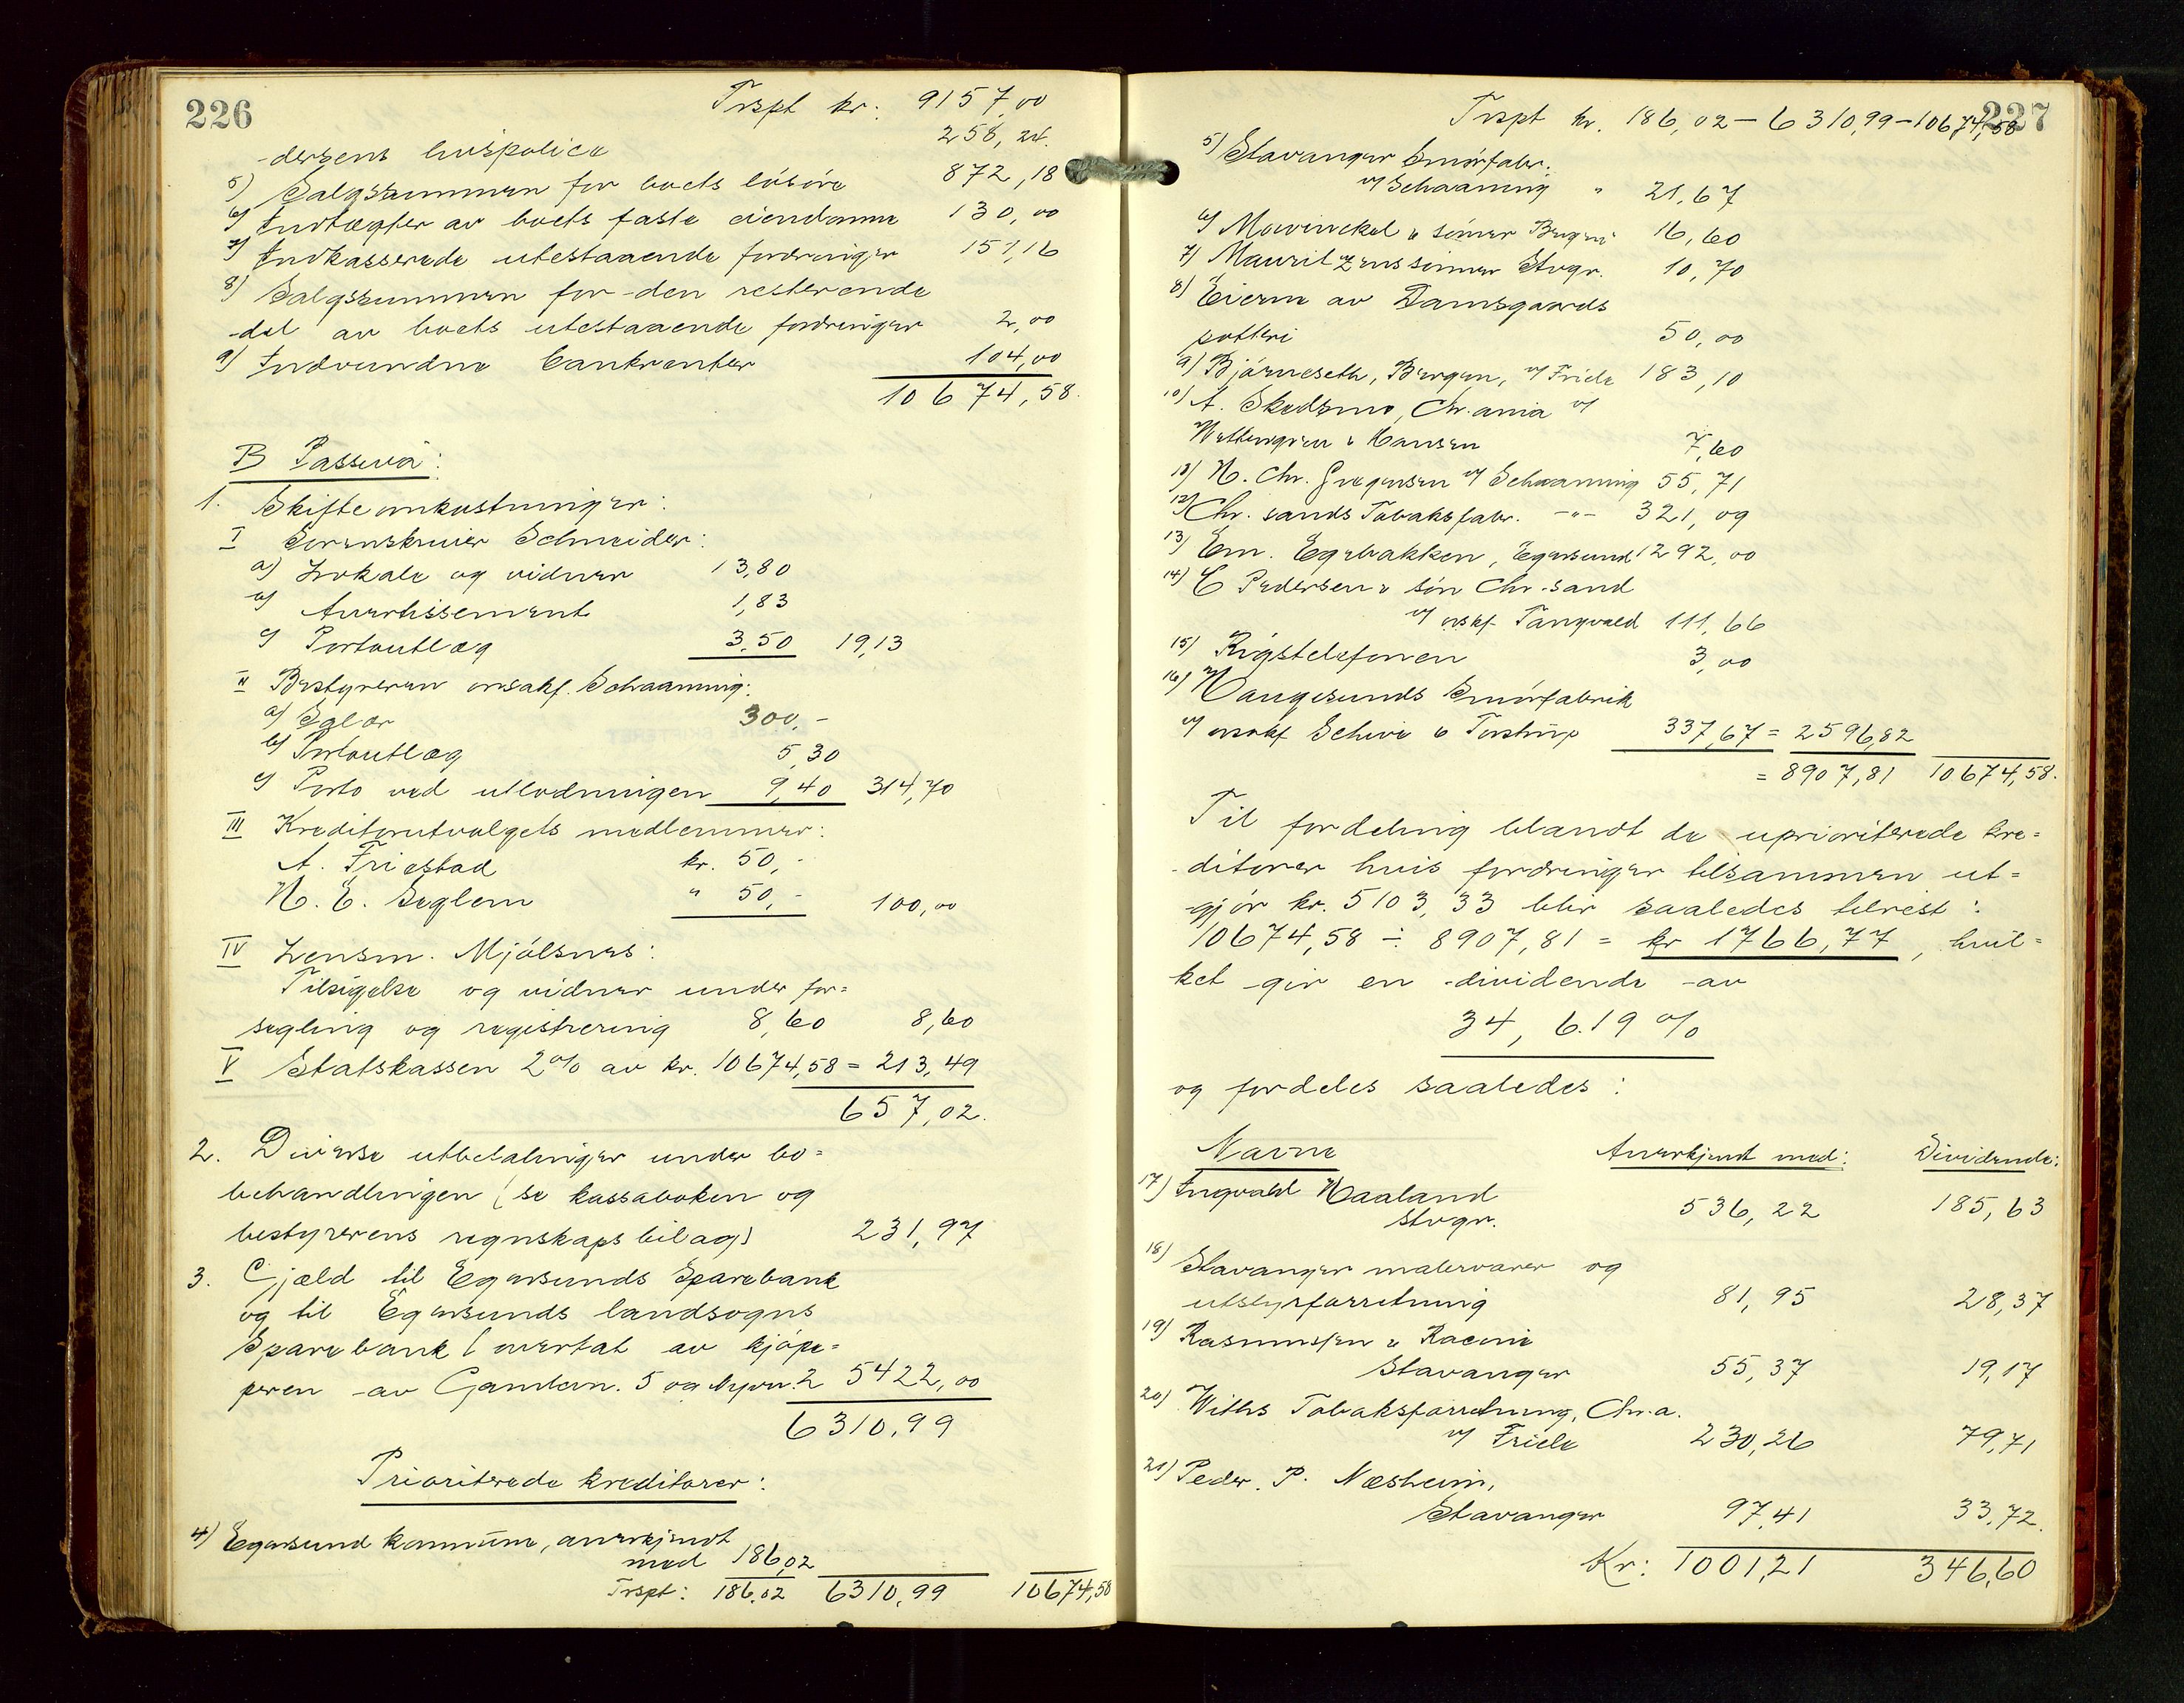 226
Trspt kr. 9157,00
dersens livspolice 258,24
5) Salgssummen for boets løsøre 872,18
6) Indtægter av boets faste eiendomme 130,00
7) Indkasserede utestaaende fordringer 151,16
8) Salgssummen for den resterende
del av boets utestaaende fordringer 2,00
9) Indvundne bankrenter 104,00
10674,58.
B Passiva:
1. Skifteomkostninger:
I Sorenskriver Schneider:
a) Lokale og vidner 13,80
b) Avertissement 1,83
c) Portoutlæg 3,50 19,13
II Bestyreren o.r.sakf. Schaanning:
a) Salær 300,-
b) Portoutlæg 5,30
c) Porto ved utlodningen 9,40 314,70
III Kreditorutvalgets medlemmer:
A. Friestad kr. 50,-
N. E. Seglem " 50,- 100,00
IV Lensm. Mjølsnes:
Tilsigelse og vidner under for=
segling og registrering 8,60 8,60
V Statskassen 2% av kr. 10674,58 = 213,49
657,02.
2. Diverse utbetalinger under bo=
behandlingen (se kassaboken og
bestyrerens regnskapsbilag) 231,97
3. Gjæld til Egersunds Sparebank
og til Egersunds landsogns
Sparebank (overtat av kjøpe=
peren av Gamlem. 5 og Nyem. 2 5422,00
6310,99
Prioriterede kreditorer:
4) Egersund kommune, anerkjendt
med 186,02
Trspt: 186,02 6310,99 10674,58
227
Trspt kr. 186,02 – 6310,99 – 10674,58
5) Stavanger Smørfabr.
v/ Schaanning " 21,67
6) Mowinckel & sønner Bergen 16,60
7) Mauritzens sønner Stvgr. 10,70
8) Eierne av Damsgaards
potteri 50,00
9) Bjørneseth, Bergen, v/ Friele 183,10
10) A. Skedsmo, Chr.ania v/
Wettergreen & Hansen 7,60
11) N. Chr. Gregersen v/ Schaanning 55,71
12) Chr.sands Tobaksfabr. -"- 321,09
13) Em. Egebakken, Egersund 1292,00
14) C Pedersen & søn Chr.sand
v/ orskf. Tangvald 111,66
15) Rigstelefonen 3,00
16) Haugesunds Smørfabrik
v/ orsakf Schive & Torstrup 337,67 = 2596,82
= 8907,81 10674,58.
Til fordeling blandt de uprioriterede kre=
ditorer hvis fordringer tilsammen ut=
gjør kr. 5103,33 blir saaledes tilrest:
10674,58 ÷ 8907,81 = kr 1766,77, hvil=
ket gir en dividende av
34,619 %
og fordeles saaledes:
Navne Anerkjendt med: Dividende:
17) Ingvald Haaland
Stvgr. 536,22 185,63
18) Stavanger malervarer og
utstyrforretning 81,95 28,37
19) Rasmussen & Racine
Stavanger 55,37 19,17
20) Withs Tobaksforretning, Chr.a.
v/ Friele 230,26 79,71
21) Peder P. Næsheim,
Stavanger 97,41 33,72.
Kr: 1001,21 346,60